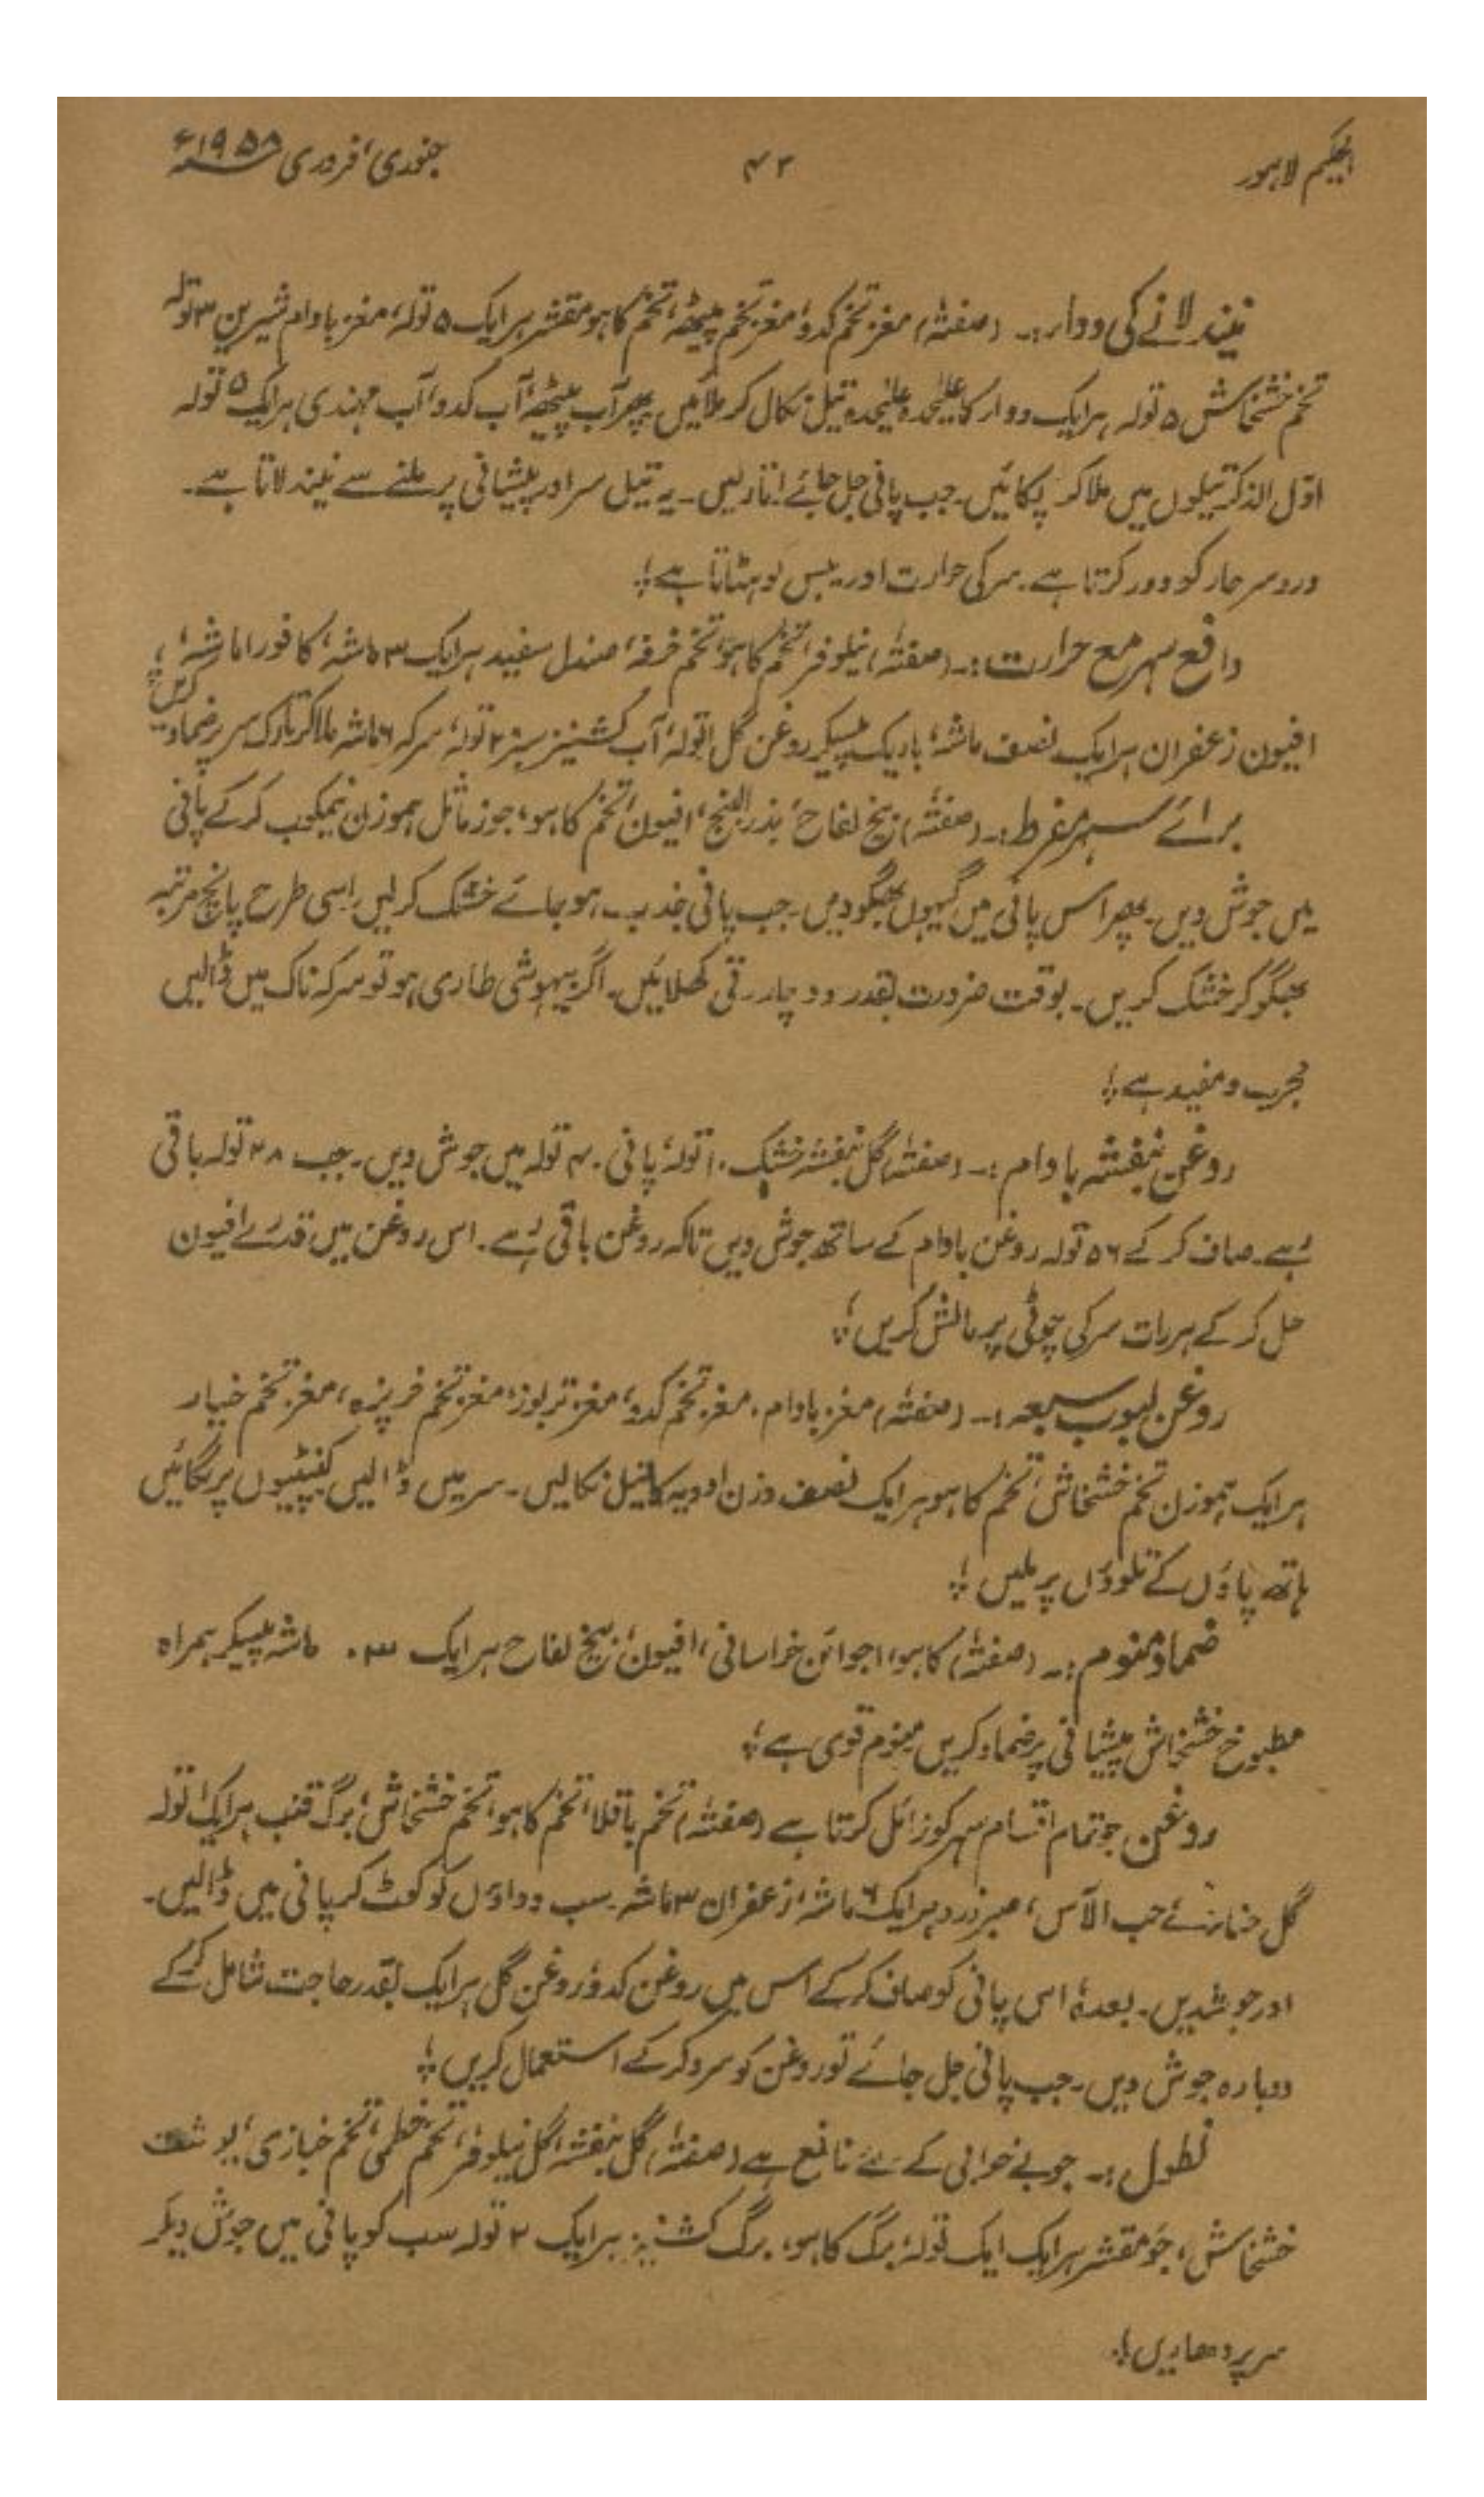 الحکیم لاہور ۴۲ جنوری، فروری ۱۹۵۸ء
نیند لانے کی دواء:۔ (صفتہٗ) مغز تخم کدو، مغز تخم پیٹھہ، تخم کاہو مقشر ہر ایک ۵ تولہ، مغز بادام شیریں ۳ تولہ
تخم خشخاش ۵ تولہ ہر ایک دواء کا علیٰحدہ علیٰحدہ تیل نکال کر ملائیں پھر آب پیٹھہ، آب کدو، آب مہندی ہر ایک ۵ تولہ
اوّل الذکر تیلوں میں ملا کر پکائیں۔ جب پانی جل جائے اتار لیں۔ یہ تیل سر اور پیشانی پر ملنے سے نیند لاتا ہے۔
دردسر حار کو دور کرتا ہے۔ سر کی حرارت اور یبس کو ہٹاتا ہے؛
دافع سہر مع حرارت:۔ (صفتہٗ) نیلوفر، تخم کاہو، تخم خرفہ، صندل سفید ہر ایک ۳ ماشہ، کافور ۱ ماشہ،
افیون زعفران ہر ایک نصف ماشہ، باریک پیسکر روغن گل ۱ تولہ، آب کشنیز سبز ۲ تولہ، سرکہ ۶ ماشہ ملا کر تارک سر پر ضماد کریں؛
برائے سہر مفرط:۔ (صفتہٗ) بیخ لفاح، بذر البنج، افیون، تخم کاہو، جوز ماثل ہموزن نیمکوب کر کے پانی
میں جوش دیں۔ پھر اس پانی میں گیہوں بھگو دیں۔ جب پانی جذب ہو جائے خشک کر لیں۔ اسی طرح پانچ مرتبہ
بھگو کر خشک کریں۔ بوقت ضرورت بقدر دو چار رتی کھلائیں۔ اگر بیہوشی طاری ہو تو سرکہ ناک میں ڈالیں
مجرب و مفید ہے؛
روغن بنفشہ بادام:۔ (صفتہٗ) گل بنفشہ خشک ۱۰ تولہ، پانی ۴۰ تولہ میں جوش دیں۔ جب ۲۸ تولہ باقی
رہے۔ صاف کر کے ۵۶ تولہ روغن بادام کے ساتھ جوش دیں تاکہ روغن باقی رہے۔ اس روغن میں قدرے افیون
حل کر کے ہر رات سر کی چوٹی پر مالش کریں؛
روغن لبوب سبعہ:۔ (صفتہٗ) مغز بادام، مغز تخم کدو، مغز تربوز، مغز تخم خرپزہ، مغز تخم خیار
ہر ایک ہموزن تخم خشخاش، تخم کاہو ہر ایک نصف وزن ادویہ کا تیل نکالیں۔ سر میں ڈالیں کنپٹیوں پر لگائیں
ہاتھ پاؤں کے تلوؤں پر ملیں؛
ضماد منوم:۔ (صفتہٗ) کاہو، اجوائن خراسانی، افیون، بیخ لفاح ہر ایک ۳۰ ماشہ پیسکر ہمراہ
مطبوخ خشخاش پیشانی پر ضماد کریں منوم قوی ہے؛
روغن جو تمام اقسام سہر کو زائل کرتا ہے (صفتہٗ) تخم باقلا، تخم کاہو، تخم خشخاش، برگ قنب ہر ایک ۱ تولہ
گل حنا حب الآس، عنبر زرد ہر ایک ۶ ماشہ، زعفران ۳ ماشہ۔ سب دواؤں کو کوٹ کر پانی میں ڈالیں۔
اور جوشدیں۔ بعدہٗ اس پانی کو صاف کر کے اس میں روغن کدو، روغن گل ہر ایک بقدر حاجت شامل کر کے
دوبارہ جوش دیں۔ جب پانی جل جائے تو روغن کو سرد کر کے استعمال کریں؛
نطول:۔ جو بے خوابی کے لئے نافع ہے (صفتہٗ) گل بنفشہ، گل نیلوفر، تخم خطمی، تخم خبازی، پوست
خشخاش، جَو مقشر ہر ایک ایک تولہ، برگ کاہو، برگ کشنیز ہر ایک ۲ تولہ سب کو پانی میں جوش دیکر
سر پر دھاریں؛